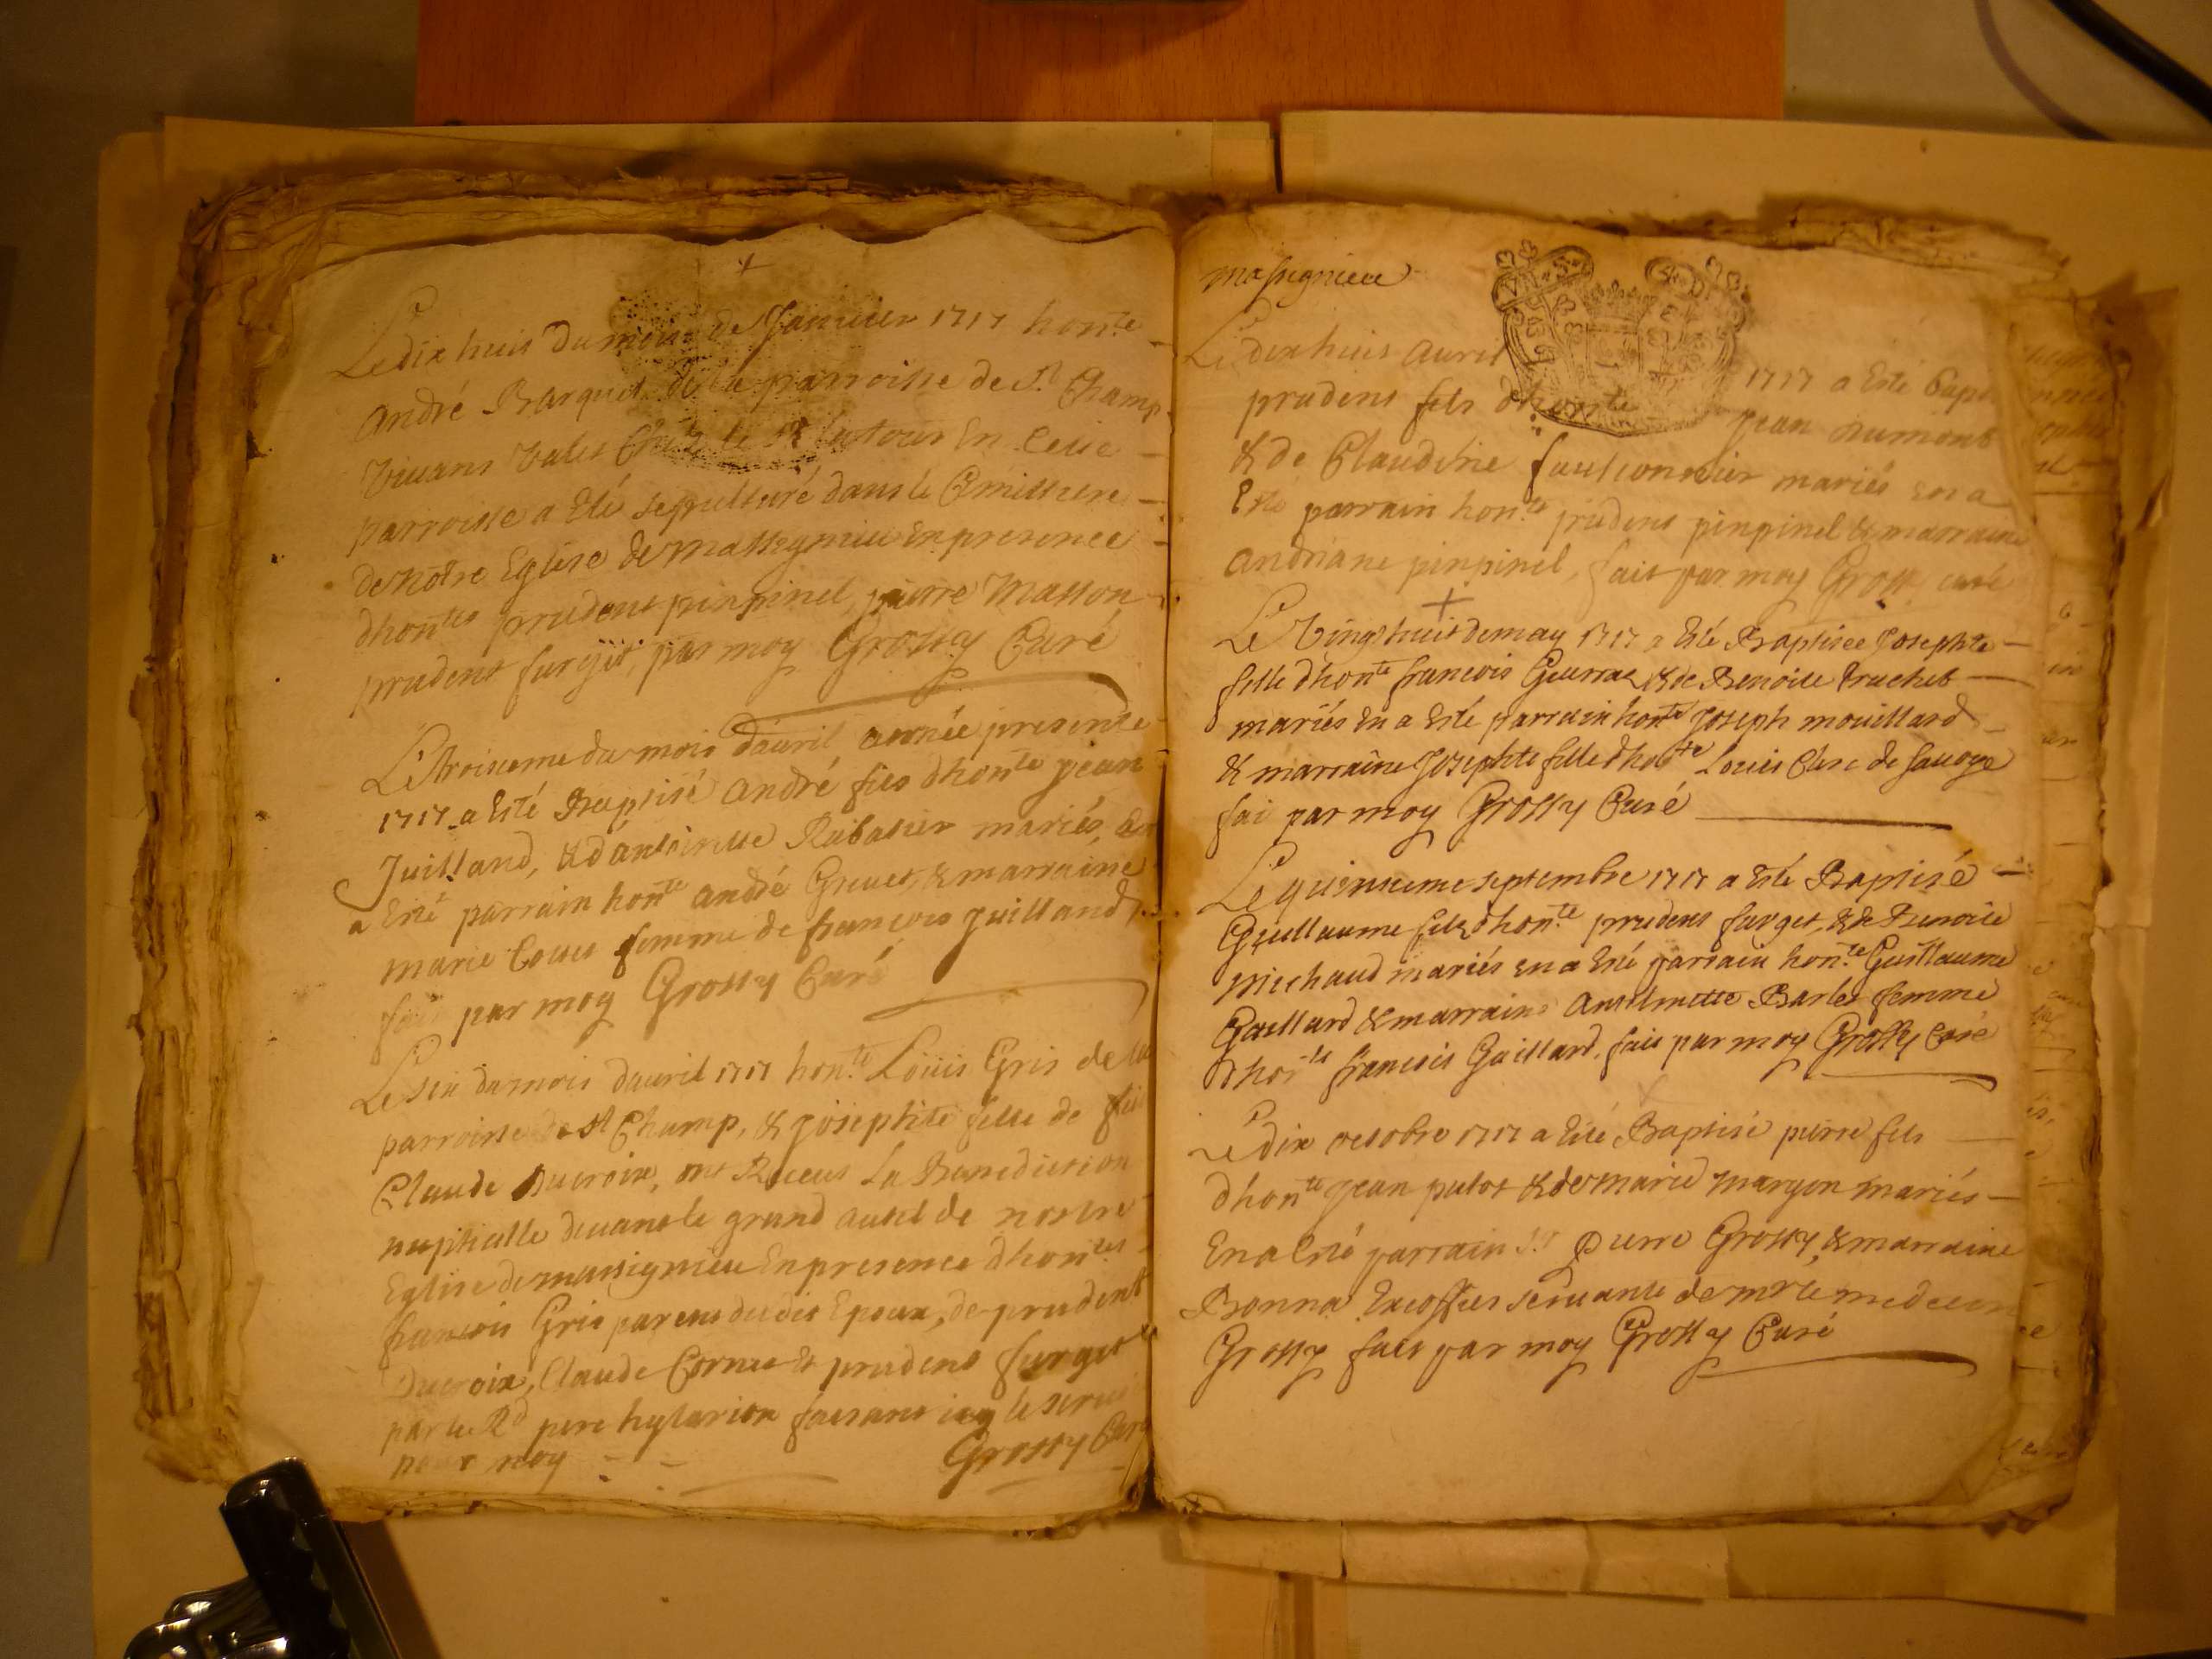 Le dix huis du mois de Januier 1717 hon.te
André Barquet de la parroisse de St. Champ
viuans valet Chez le Sr en cette
parroisse a Esté sepulturé dans le Cimittiere
de notre Eglise de massignieu en presence
dhon.tes prudent pinpinel, pierre Masson
prudent furget, par moy Grossy Curé
Le troisieme du mois dauril année presente
1717 a Esté Baptisé André fils dhon.te jean
Juilland, & dantoinette Rubatier mariés, En
a Esté parrain hon.te André Greuet, & marraine
marie femme de francois Juilland,
fait par moy Grossy Curé
Le six du mois dauril 1717 hon.te Louis Gris de la
parroisse de St Champ, & josephte fille de feu
Claude Ducroix, ont Receus La Benediction
nuptialle deuant le grand autel de nostre
Eglise de massignieu En presence dhon.tes
francois Gris parens dudit Epoux, de prudent
Ducroix, Claude Cornu & prudens furget
par le Rd pere hylarion faisans icy le serui
pour moy Grossy Curé
massignieu
Le dix huis auril 1717 a Esté Bapt
prudens fils dhon.te jean Dumont
& de Claudine faulconnier mariés en a
Esté parrain hon.te prudens pinpinel & marraine
andriane pinpinel, fait par moy Grossy curé
Le vingt huit de may 1717 a Esté Baptisee Josephte
fille dhon.te francois & de Benoite Truchet
mariés En a Esté parrain hon.te Joseph mouillard
& marraine Josephte fille dhon.te Louis Clerc de sauoye
fai par moy Grossy Curé
Le quinsieme septembre 1717 a Esté Baptisé
Guillaume fils dhon.te prudens furget, & de Benoite
michaud mariés en a Esté parrain hon.te Guillaume
Gaillard & marraine Anthelmette Barlet femme
dhon.te francois Gaillard, fais par moy Grossy Curé
Le dix octobre 1717 a Esté Baptisé pierre fils
dhon.te jean pulot & de marie maryon mariés
En a Esté parrain S.r pierre Grossy, & marraine
Bonna Excoffier seruante de mr le medecin
Grossy fait par moy Grossy Curé